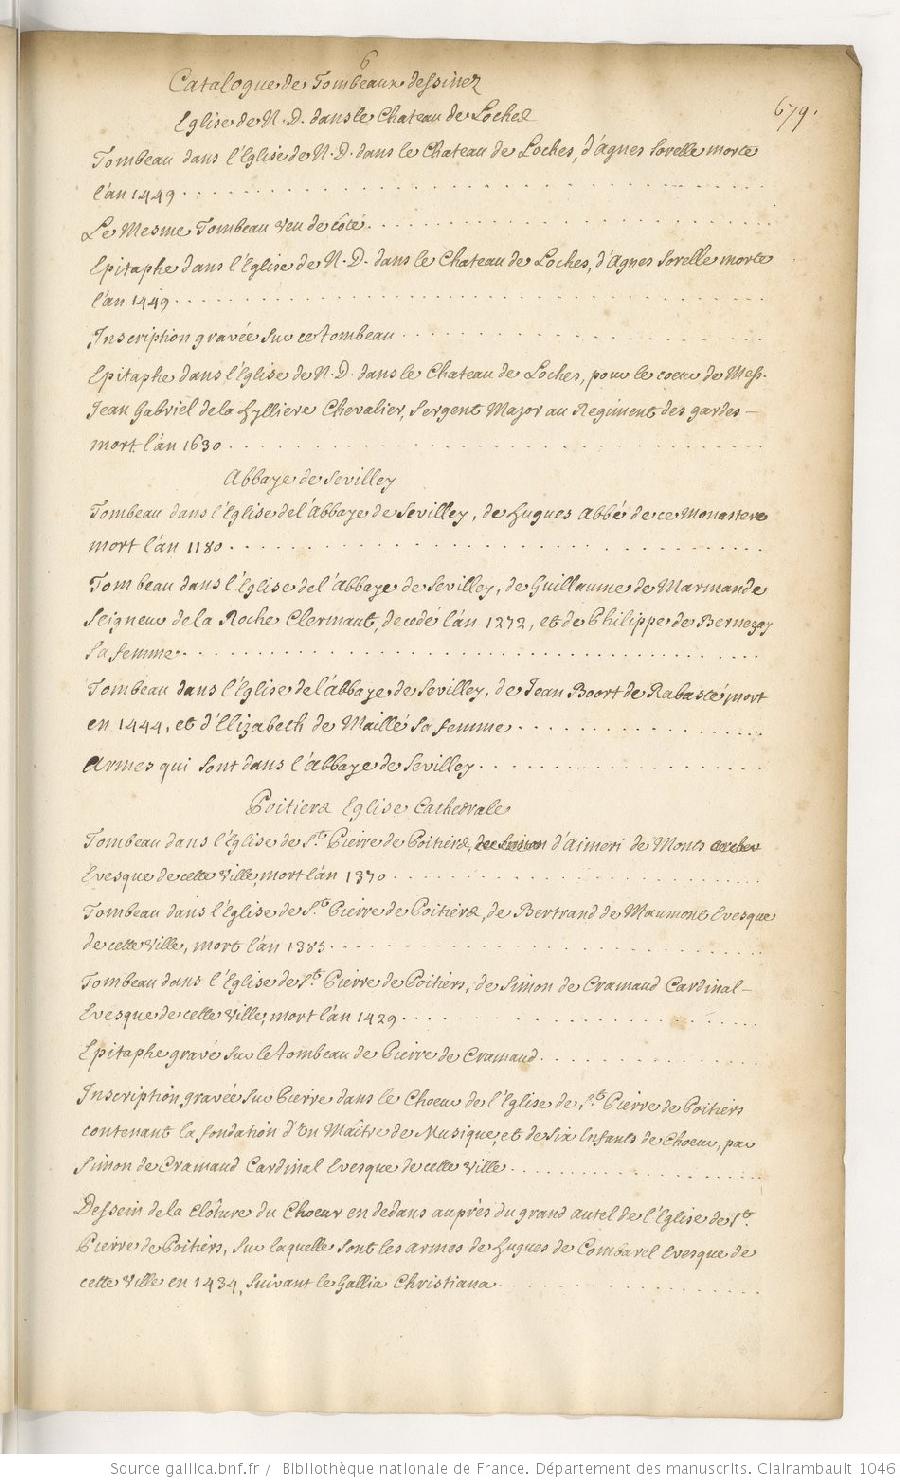 6
Catalogue de Tombeaux dessinez
679.
Eglise de N. D. dans le Chateau de Loches
Tombeau dans l'Eglise de N. D. dans le Chateau de Loches, d'Agnes Sorelle morte
l'an 1449
Le Mesme Tombeau veu de côté
Epitaphe dans l'Eglise de N. D. dans le Chateau de Loches, d'Agnes Sorelle morte
l'an 1449
Inscription gravée sur ce tombeau
Epitaphe dans l'Eglise de N. D. dans le Chateau de Loches, pour le coeur de Mess.
Jean Gabriel de la Hylliere Chevalier, Sergent Major au Regiment des gardes
mort l'an 1630
Abbaye de Sevilley
Tombeau dans l'Eglise de l'Abbaye de Sevilley, de Hugues Abbé de ce Monastere
mort l'an 1180
Tombeau dans l'Eglise de l'Abbaye de Sevilley, de Guillaume de Marmande
Seigneur de la Roche Clermaut, decedé l'an 1272, et de Philippe de Bernezay
sa femme
Tombeau dans l'Eglise de l'abbaye de Sevilley, de Jean Boort de Rabasté, mort
en 1444, et d'Elizabeth de Maillé sa femme
Armes qui sont dans l'Abbaye de Sevilley
Poitiers Eglise Cathedrale
Tombeau dans l'Eglise de St. Pierre de Poitiers, d'Aimeri de Monts
Evesque de cette Ville, mort l'an 1370
Tombeau dans l'Eglise de St. Pierre de Poitiers, de Bertrand de Maumont Evesque
de cette Ville, mort l'an 1385
Tombeau dans l'Eglise de St. Pierre de Poitiers, de Simon de Cramaud Cardinal
Evesque de cette Ville, mort l'an 1429
Epitaphe gravé sur le tombeau de Pierre de Cramaud
Inscription gravée sur Pierre dans le Choeur de l'Eglise de St. Pierre de Poitiers
contenant la fondation d'un Maître de Musique, et de six Enfants de Choeur, par
Simon de Cramaud Cardinal Evesque de cette Ville
Dessein de la Clôture du Choeur en dedans auprès du grand autel de l'Eglise de St.
Pierre de Poitiers, sur laquelle sont les armes de Hugues de Combarel Evesque de
cette Ville en 1434, suivant le Gallia Christiana
Source gallica.bnf.fr / Bibliothèque nationale de France. Département des manuscrits. Clairambault 1046